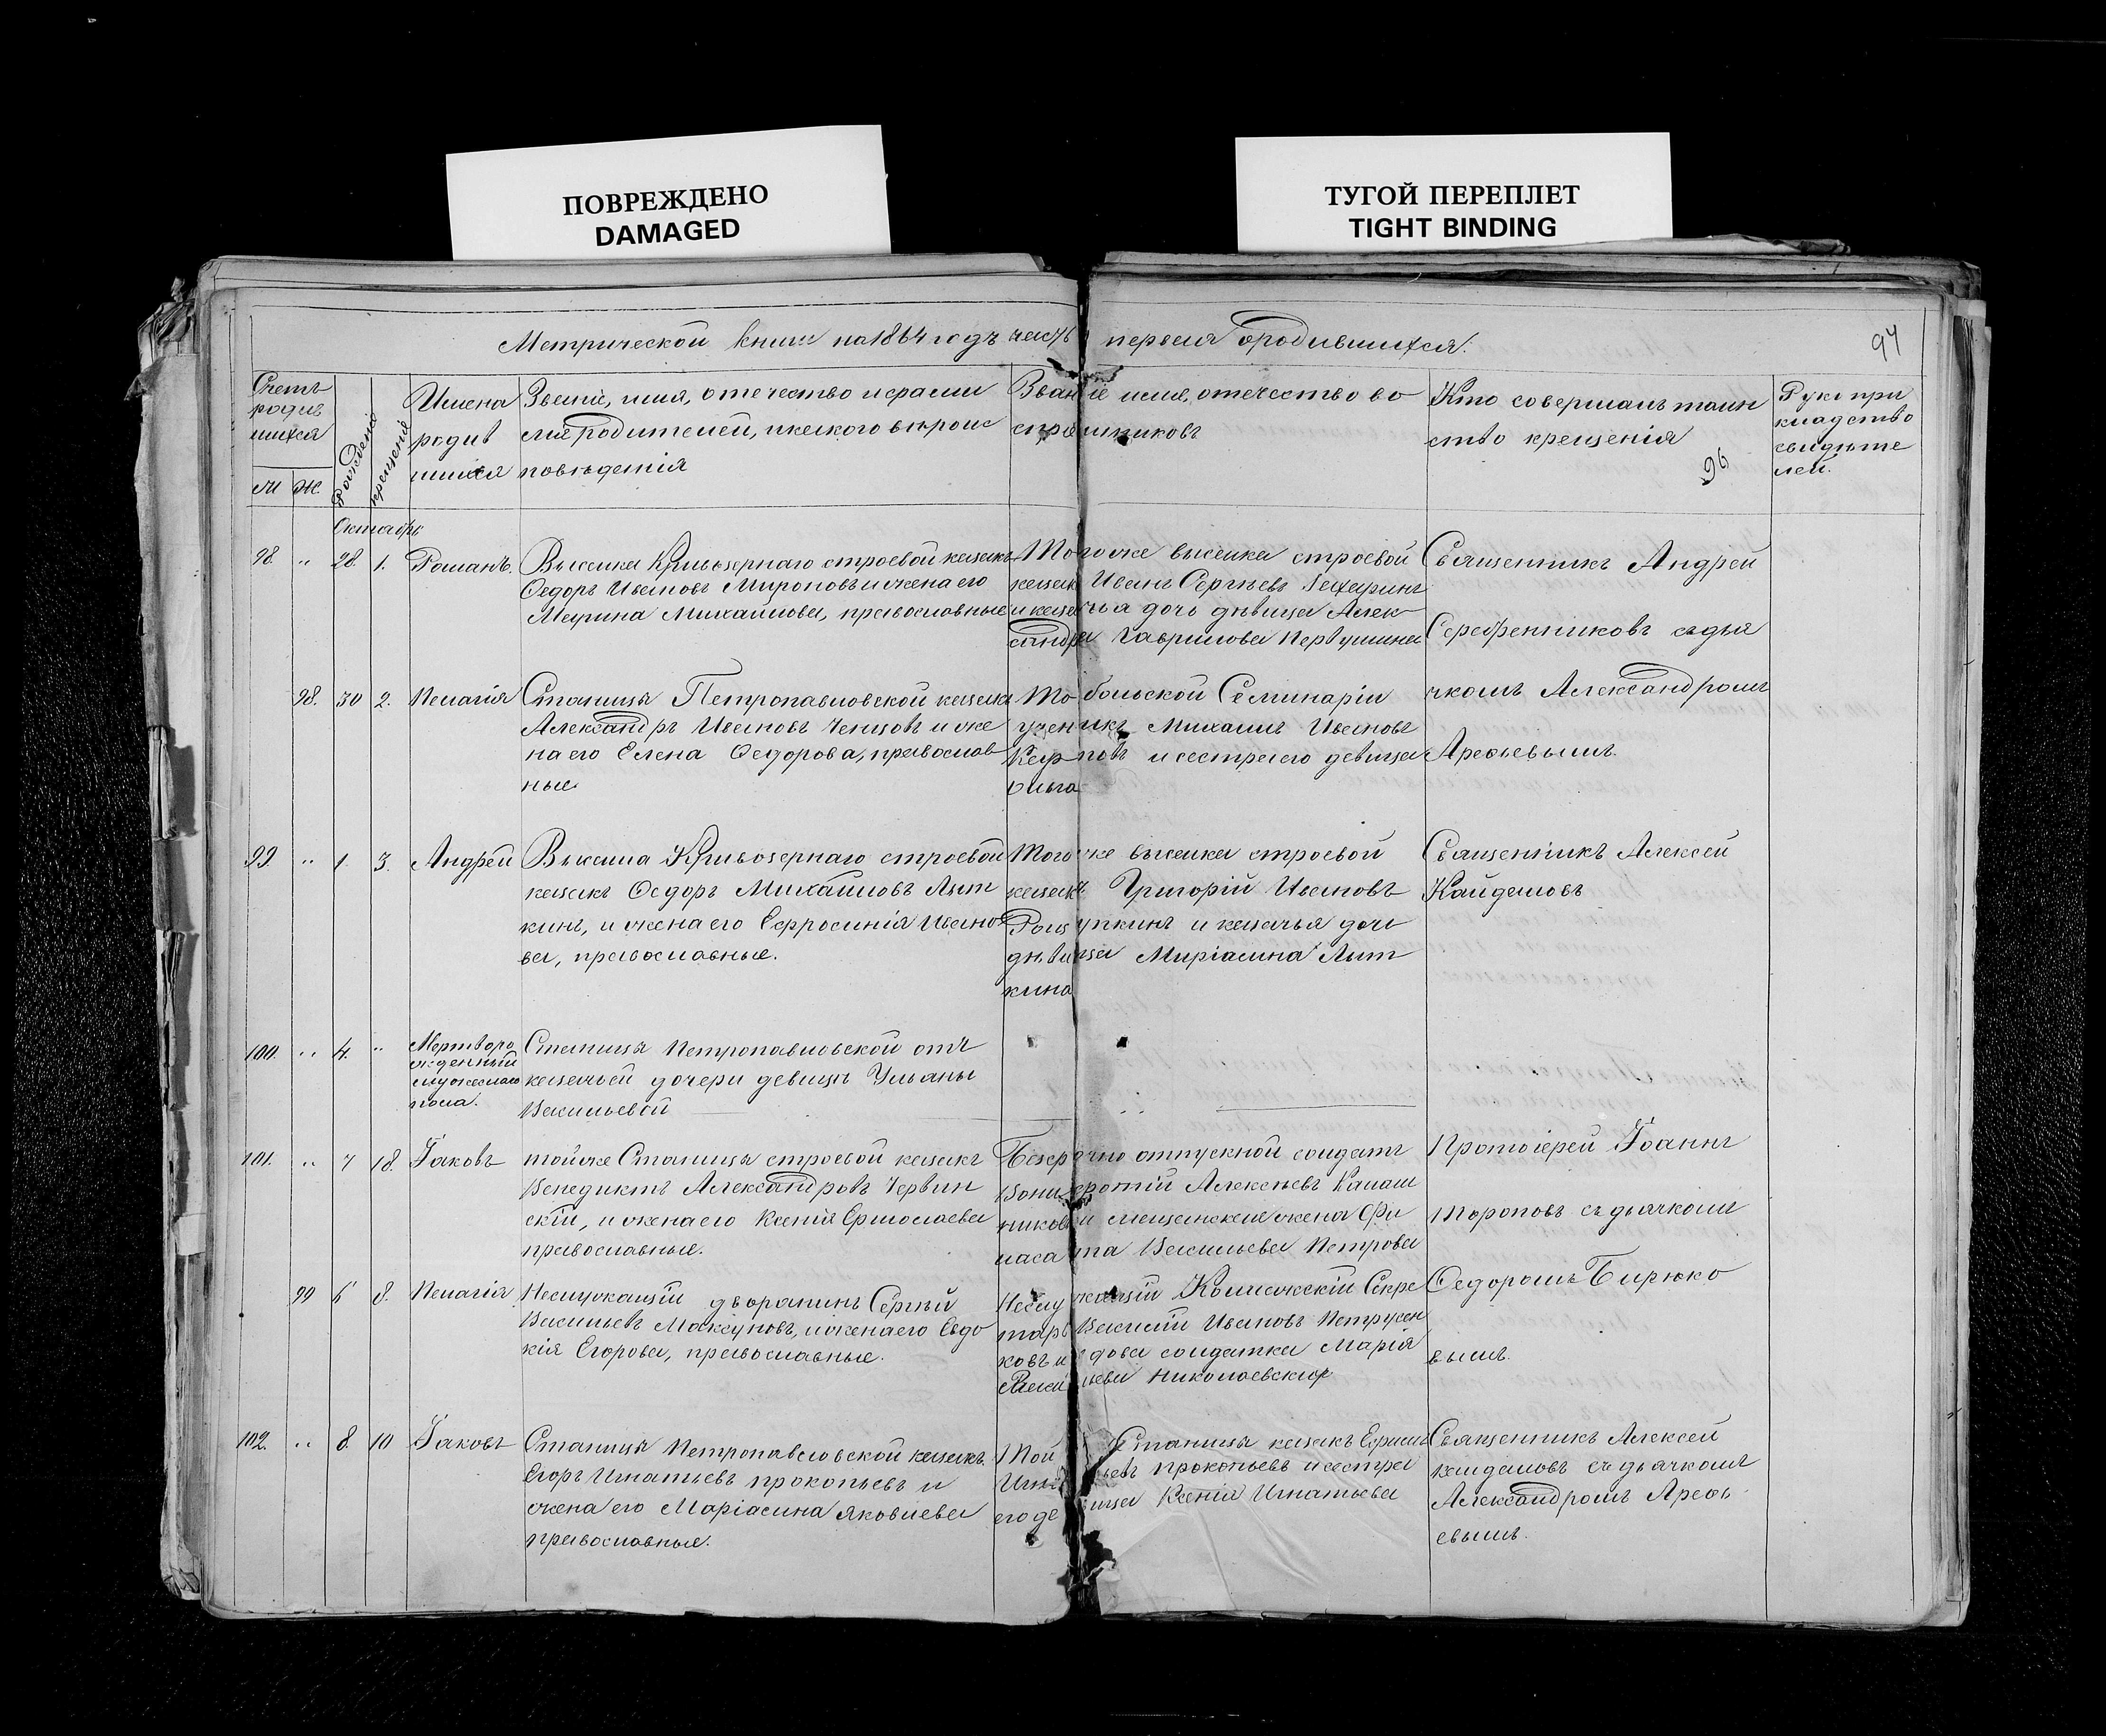 ПОВРЕЖДЕНО
DAMAGED
ТУГОЙ ПЕРЕПЛЕТ
TIGHT BINDING
Метрической книги на 1864 годъ часть первая о родившихся.
94
Счетъ
родив
шихся
М
Ж.
Рожденія
крещенія
Имена
родив
шихся
Званіе, имя, отечество и фами
лія родителей, и какого вѣроис
повѣданія
Званіе имя, отечество во
спріемниковъ
Кто совершалъ таин
ство крещенія
96
Руко при
кладство
свидѣте
лей.
Октябрь
98. „ 28. 1. Романъ.
Выселка Кривозернаго строевой казакъ
Ѳедоръ Ивановъ Мироновъ и жена его
Марина Михайлова, православные
Того же выселка строевой
казакъ Иванъ Сергѣевъ
и казачья дочь дѣвица Алек
сандра Гаврилова Первушина
Священникъ Андрей
Серебренниковъ съ дья
чкомъ Александромъ
Арефьевымъ.
98. 30 2. Пелагія
Станицы Петропавловской казакъ
Александръ Ивановъ Ченцовъ и же
на его Елена Ѳедорова, православ
ные
Тобольской Семинаріи
ученикъ Михаилъ Ивановъ
Карповъ и сестра его девица
Ольга
99. „ 1. 3. Андрей
Выселка Кривозернаго строевой
казакъ Ѳедоръ Михайловъ Лыт
кинъ, и жена его Евфросинія Ивано
ва, православные.
Того же выселка строевой
казакъ Григорій Ивановъ
Рощупкинъ и казачья дочь
дѣвица Маріамна Лыт
кина
Священникъ Алексей
Кайдаловъ
100. „ 4. „
Мертворо
жденный
мужескаго
пола.
Станицы Петропавловской отъ
казачьей дочери девицы Ульяны
Васильевой
101. „ 7 18. Іаковъ
той же Станицы строевой казакъ
Венедиктъ Александровъ Червин
скій, и жена его Ксенія Ермолаева
православные.
Безсрочно отпускной солдатъ
Алексѣевъ Калаш
никовъ и мещанская жена
Васильева Петрова
Протоіерей Іоаннъ
Тороповъ съ дьячкомъ
Ѳедоромъ Бирюко
вымъ.
99 6 8. Пелагія
Неслужащій дворянинъ Сергѣй
Васильевъ Максуновъ, и жена его Евдо
кія Егорова, православные.
Неслужащій Секре
тарь Василій Ивановъ Петрусен
ковъ и вдова солдатка Марія
Николаевская
102. „ 8. 10 Іаковъ
Станицы Петропавловской казакъ
Егоръ Игнатьевъ Прокопьевъ и
жена его Маріамна Яковлева
православные.
Той Станицы казакъ
Игнатьевъ Прокопьевъ и сестра
его девица Ксенія Игнатьева
Священникъ Алексей
Кайдаловъ съ дьячкомъ
Александромъ Арефь
евымъ.